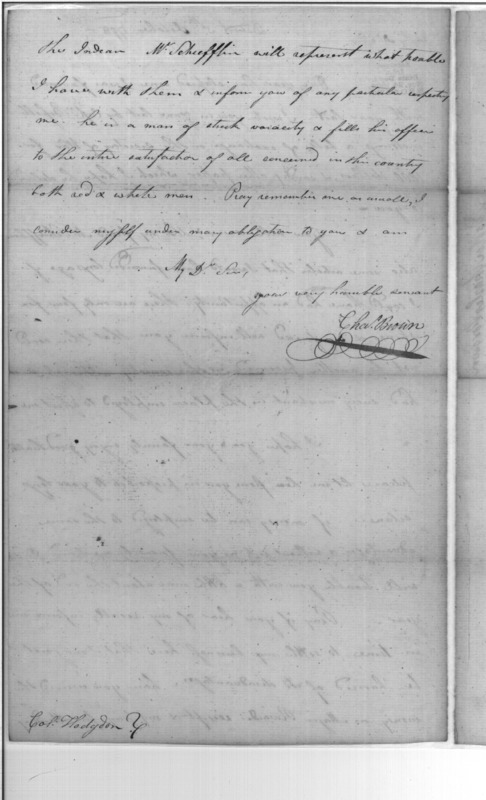 the Indean Mr. Schiefflin will represent what trouble
I have with them & inform you of any particular respecting
me. he is a man of strick varacity & fills his office
to the entire satisfaction of all concerned in this country
both red & white men. Pray remember me as usuall, I
consider myself under many obligation to you & am
My Dr. Sir,
your very humble servant
Chas. Brown
Col. Hodgdon